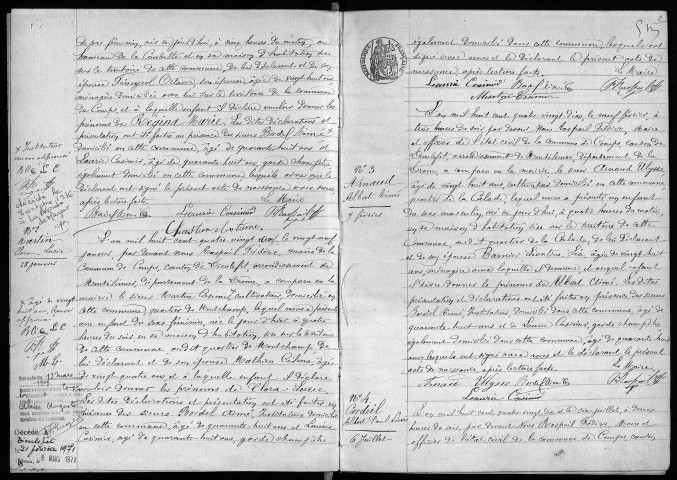 de sexe féminin, née ce jourd'hui, à cinq heures du matin, au
hameau de la Combette et en sa maison d'habitation sise
sur le territoire de cette commune de lui déclarant et de son
épouse Octavie son épouse, âgée de vingt huit ans
ménagère domiciliée avec lui sur le territoire de la commune
de Comps, et à laquelle enfant il déclare vouloir donner les
prénoms de Régina Marie. Les dites déclarations et
présentation ont été faites en présence des sieurs Bordel Aimé
en cette commune, âgé de quarante huit ans et
Laurie Casimir, âgé de quarante huit ans, garde champêtre
également domicilié en cette commune lesquels ainsi que le
déclarant ont signé le présent acte de naissance avec nous
après lecture faite. Le Maire
Laurie Casimir
L'an mil huit cent quatre vingt dix, le vingt neuf
janvier, par devant nous Raspail Fédéric, maire de la
Commune de Comps, canton de Dieulefit arrondissement de
Montélimar, département de la Drôme, a comparu en la
mairie le sieur Martin cultivateur domicilié en
cette commune, quartier de Montchamp, lequel nous a présenté
une enfant du sexe féminin, née le jour d'hier à quatre
heures du soir en sa maison d'habitation, sise sur le territoire
de cette commune au dit quartier de Montchamp de
lui déclarant et de son épouse Mathieu âgée
de vingt quatre ans et à laquelle enfant il déclare
vouloir donner les prénoms de Flora Lucie
Les dites Déclarations et présentation ont été faites en
présence des sieurs Bordel Aimé, Instituteur domicilié
en cette commune, âgé de quarante huit ans et Laurie
Casimir, âgé de quarante huit ans, garde champêtre
x Instituteur
mot approuvé
N° 2
Martin
Flora Lucie
28 janvier
x âgé de vingt
huit ans, renvoi
approuvé
Décédé à
Dieulefit
le 21 février 1971
8 MARS 1971
également domicilié dans cette commune, lesquels ont
signé avec nous et le Déclarant le présent acte de
naissance après lecture faite. Le Maire
Laurie Casimir
Martin
N° 3
Arnaud
Albert Aimé
9 février
L'an mil huit cent quatre vingt dix, le neuf février, à
heures du soir par devant Nous Raspail Fédéric, Maire
et officier de l'état civil de la commune de Comps canton de
Dieulefit, arrondissement de Montélimar, département de la
Drôme, a comparu en la mairie le sieur Arnaud Ulysse,
âgé de vingt huit ans, cultivateur domicilié en cette commune
quartier de la Calade, lequel nous a présenté un enfant
du sexe masculin, né ce jour d'hui, à quatre heures du matin,
en sa maison d'habitation sise sur le territoire de cette
Commune, au dit quartier de la Calade, de lui Déclarant
et de son épouse Barnier âgée de vingt huit
ans, ménagère avec laquelle il demeure et auquel enfant
il déclare donner le prénoms de Albert Aimé. Les dites
présentation et déclarations ont été faites en présence des sieurs
Bordel Aimé, Instituteur domicilié dans cette Commune, âgé
de quarante huit ans et de Laurie Casimir, garde champêtre,
également domicilié dans cette commune, âgé de quarante huit
ans, lesquels ont signé avec nous et le déclarant, le présent
acte de naissance, après lecture faite. Le Maire
Arnaud Ulysse
Laurie Casimir
N° 4
Cordeil
Albert Paul
6 Juillet
L'an mil huit cent quatre vingt dix et le six juillet à deux
heures du soir, par devant Nous Raspail Fédéric, Maire et
officier de l'état civil de la commune de Comps, canton